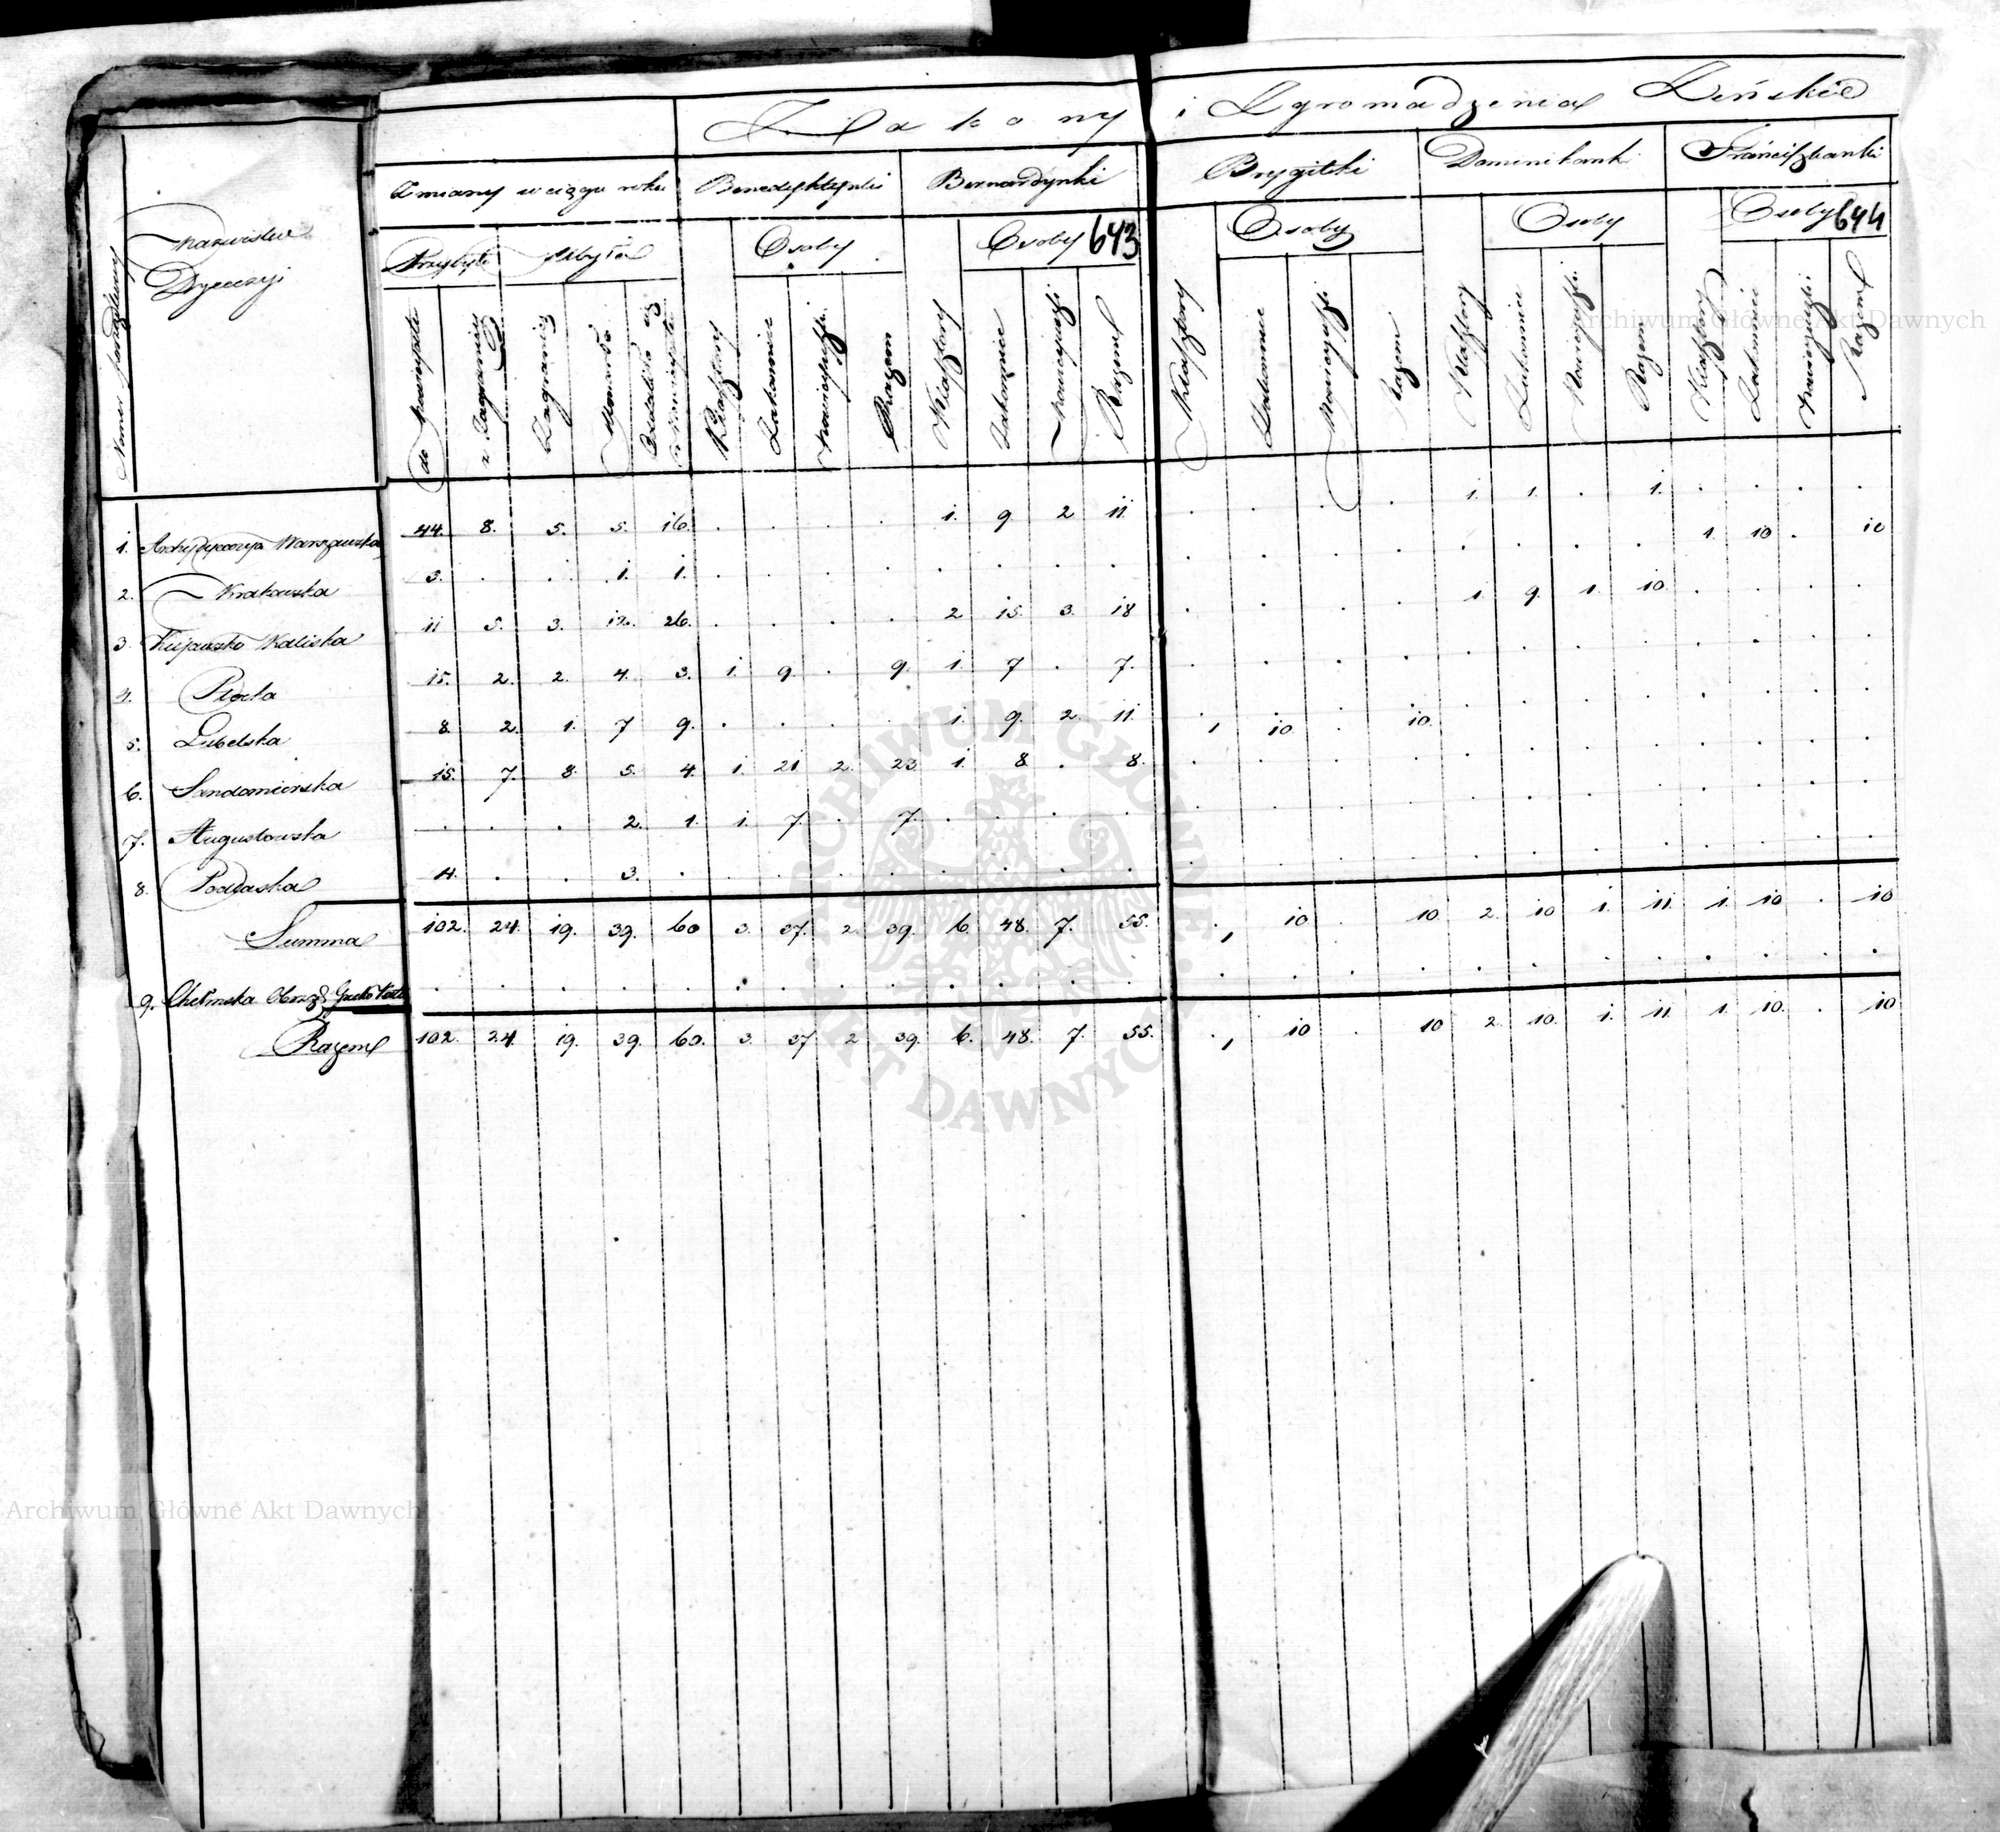 Zakony i Zgromadzenia Żeńskie
Numer porządkowy
Nazwiska Dyecezyi
Zmiany w ciągu roku
Benedyktynki
Bernardynki
Brygitki
Dominikanki
Franciszkanki
Przybyło
Ubyło
Osoby
Osoby 643
Osoby
Osoby
Osoby 644
do Nowicyatu
z Zagranicy
Zagranicę
Umarło
Klasztory Zakonnice Nowicyuszki Razem
Klasztory Zakonnice Nowicyuszki Razem
Klasztory Zakonnice Nowicyuszki Razem
Klasztory Zakonnice Nowicyuszki Razem
Klasztory Zakonnice Nowicyuszki Razem
1. Archydyecezya Warszawska 44. 8. 5. 5. 16. . . . . 1. 9 2 11 . . . . 1. 1. . 1. . . . .
2. Krakowska 3. . . 1. 1. . . . . . . . . . . . . . . . . 1. 10 . 10
3. Kujawsko Kaliska 11 5. 3. 12. 26. . . . . 2 15. 3. 18 . . . . 1. 9. 1. 10. . . . .
4. Płocka 15. 2. 2. 4. 3. 1. 9. . 9. 1. 7 . 7. . . . . . . . . . . . .
5. Lubelska 8 2. 1. 7 9. . . . . 1. 9. 2. 11. 1 10 . 10. . . . . . . . .
6. Sandomierska 15. 7. 8. 5. 4. 1. 21 2. 23 1. 8 . 8. . . . . . . . . . . . .
7. Augustowska . . . 2. 1. 1. 7. . 7. . . . . . . . . . . . . . . . .
8. Podlaska 4. . . 3. . . . . . . . . . . . . . . . . . . . . .
Summa 102. 24. 19. 39. 60 3. 37. 2. 39. 6. 48. 7. 55. 1 10 . 10. 2. 10 1. 11. 1. 10 . 10
9. Chełmska Obrzą. Grecko . . . . . . . . . . . . . . . . . . . . . . . . .
Razem 102. 24. 19. 39. 60. 3. 37 2 39. 6. 48. 7. 55. 1 10 . 10 2. 10. 1. 11 1. 10. . 10
Archiwum Główne Akt Dawnych
ARCHIWUM GŁÓWNE AKT DAWNYCH
Archiwum Główne Akt Dawnych